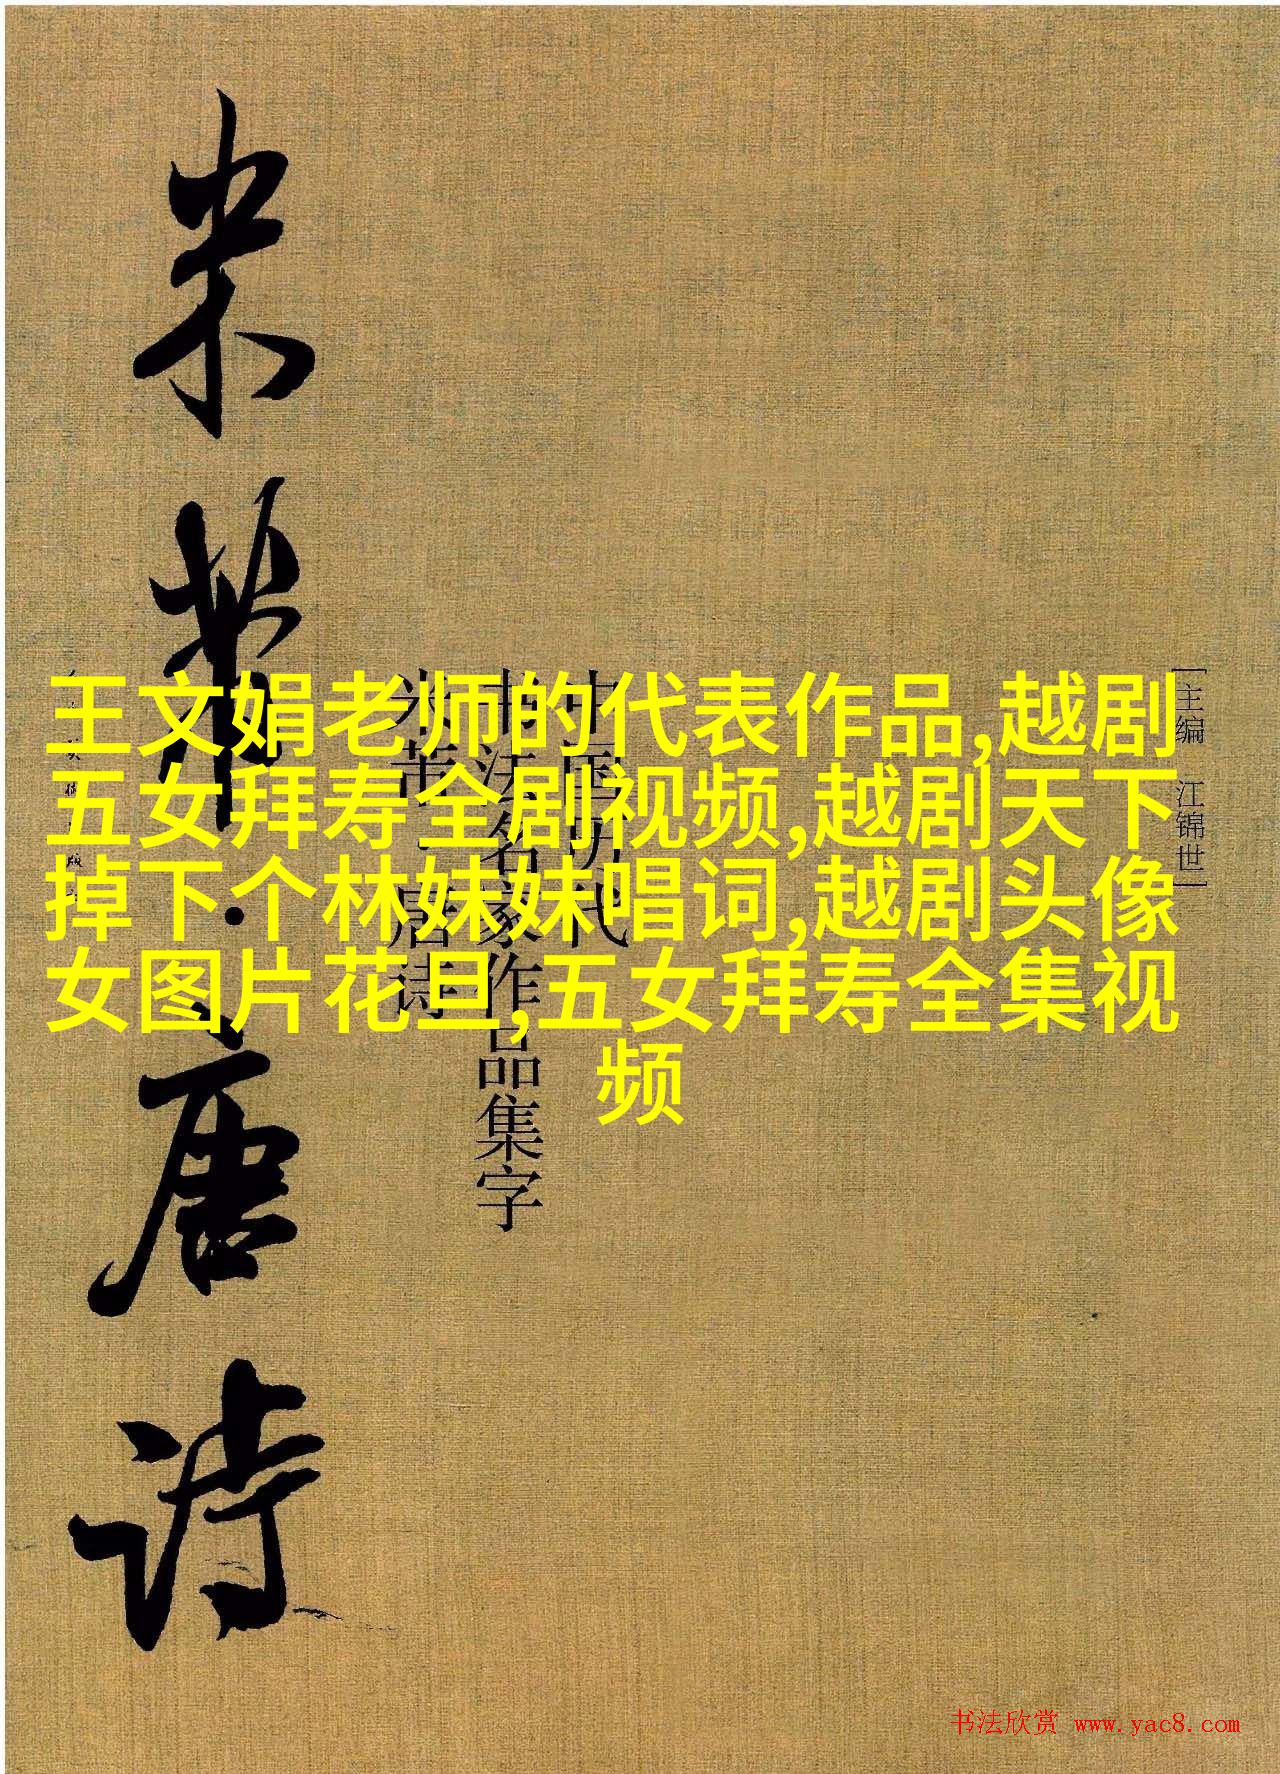 王文娟老师的代表作品,越剧
五女拜寿全剧视频,越剧天下
掉下个林妹妹唱词,越剧头像
女图片花旦,五女拜寿全集视
频
[主编 江锦世]
中国历代
书法名家作品集字
米芾·唐诗
米芾·唐诗
书法欣赏 www.yac8.com